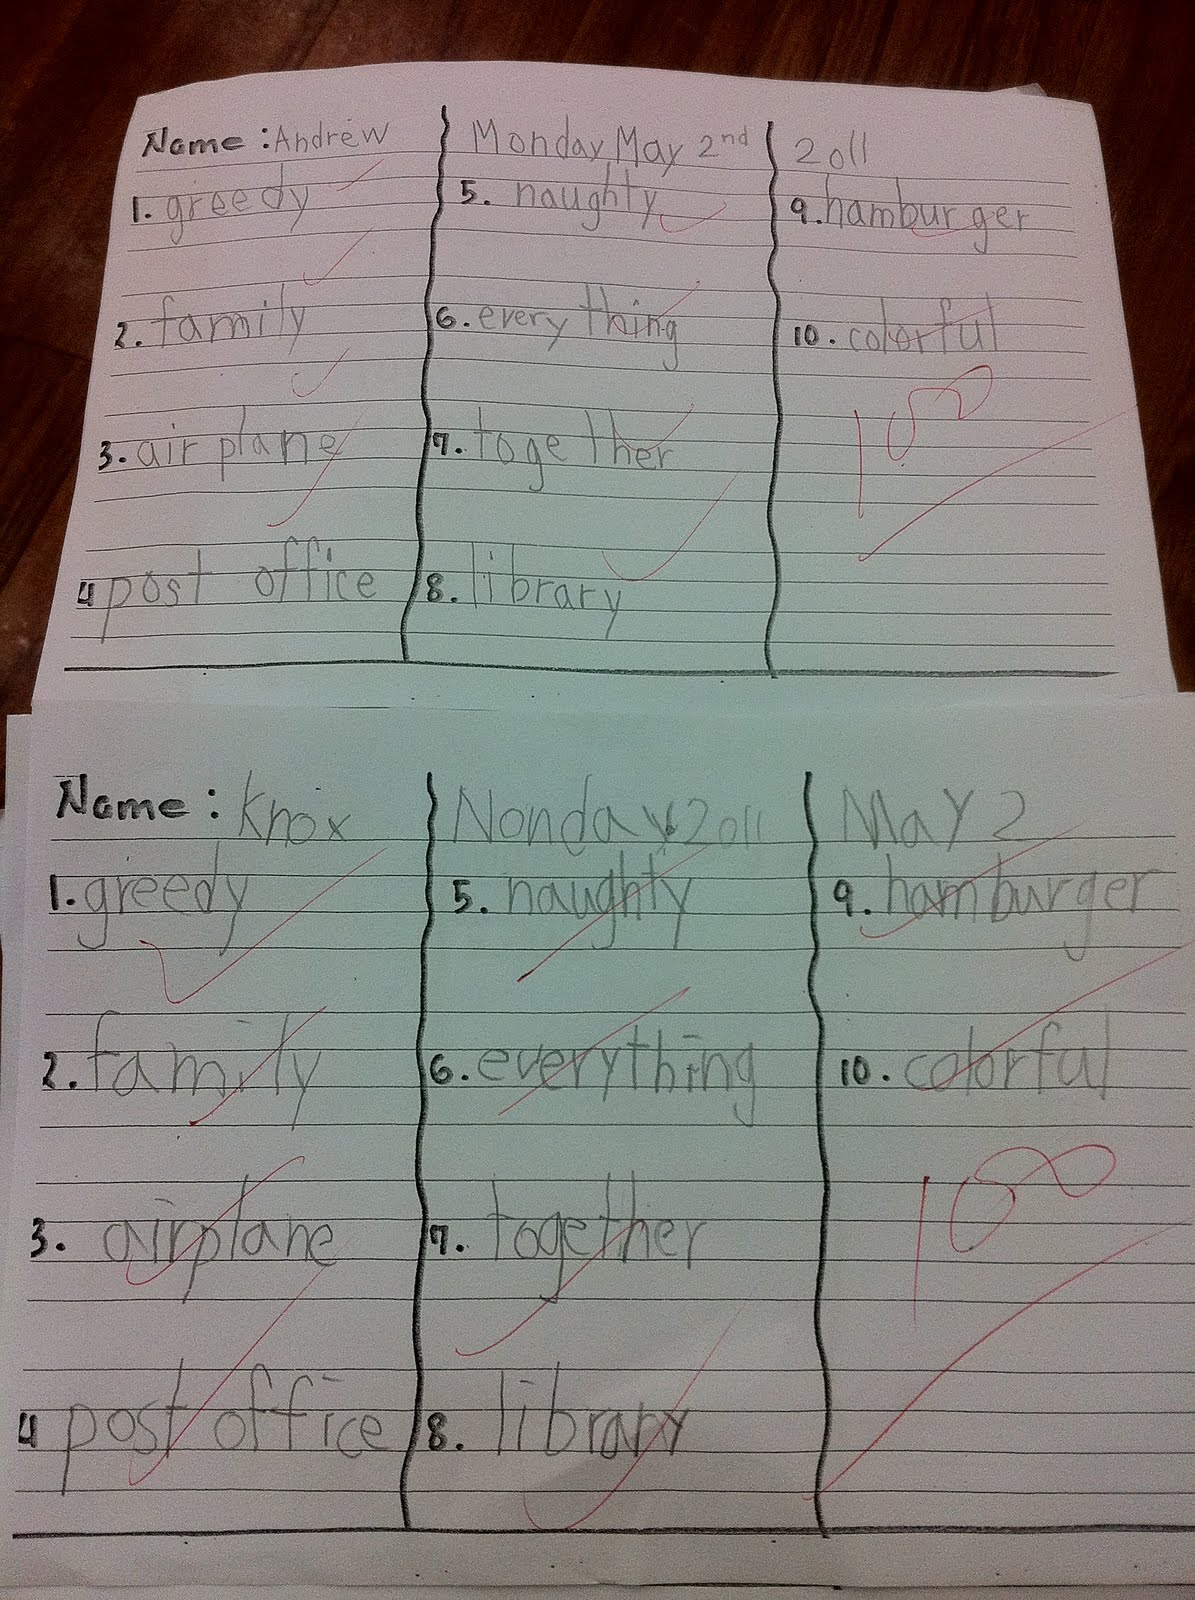 Name: Andrew Monday, May 2nd 2011
1. greedy 5. naughty 9. hamburger
2. family 6. everything 10. colorful
100
3. airplane 7. together
4 post office 8. library
Name: Knox Nonday 2011 May 2
1. greedy 5. naughty 9. hamburger
2. family 6. everything 10. colorful
100
3. airplane 7. together
4 post office 8. library